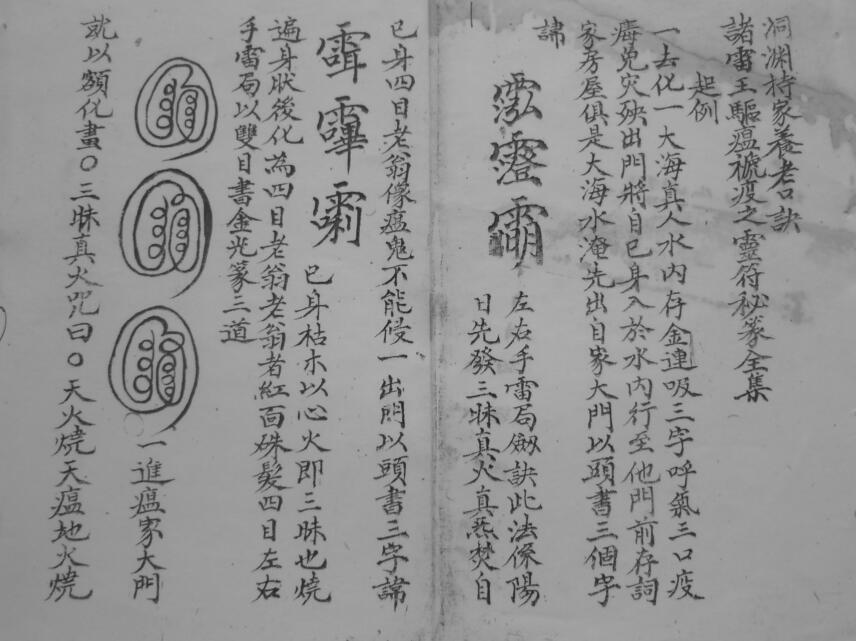 洞渊持家養老口訣
諸雷王驅瘟禠疫之靈符秘篆全集
起例
一去化一大海真人水内存金連吸三字呼氣三口疫
痗免灾殃出門將自己身入於水内行至他門前存詞
家房屋俱是大海水淹先出自家大門以頭書三個字
諱
左右手雷局劔訣此法係陽
日先發三昧真火真炁焚自
己身四目老翁像瘟鬼不能侵一出門以頭書三字諱
己身枯木以心火即三昧也燒
遍身狀後化為四目老翁老翁者紅面硃髮四目左右
手雷局以雙目書金光篆三道
一進瘟家大門
就以額化畫〇三昧真火咒曰〇天火燒天瘟地火燒